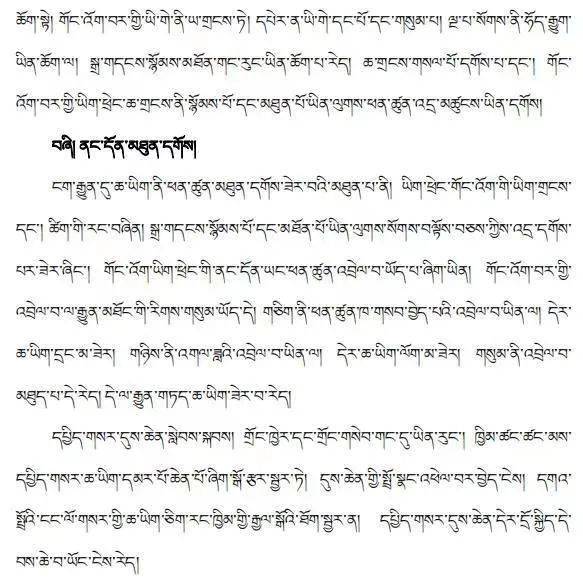 ཆོག་སྟེ། གོང་འོག་བར་གྱི་ཡི་གེ་ནི་ཡ་གྲངས་ཏེ། དཔེར་ན་ཡི་གེ་དང་པོ་དང་གསུམ་པ། ལྔ་པ་སོགས་ནི་ཧོད་རྒྱུག་
ཡིན་ཆོག་ལ། སྒྲ་གདངས་སྙོམས་མཐོན་གང་རུང་ཡིན་ཆོག་པ་རེད། ཆ་གྲངས་གསལ་པོ་དགོས་པ་དང་། གོང་
འོག་བར་གྱི་ཡིག་ཕྲེང་ཆ་གྲངས་ནི་སྙོམས་པོ་དང་མཐུན་པོ་ཡིན་ལུགས་ཕན་ཚུན་འདྲ་མཚུངས་ཡིན་དགོས།
བཞི། ནང་དོན་མཐུན་དགོས།
ངག་རྒྱུན་དུ་ཆ་ཡིག་ནི་ཕན་ཚུན་མཐུན་དགོས་ཟེར་བའི་མཐུན་པ་ནི། ཡིག་ཕྲེང་གོང་འོག་གི་ཡིག་གྲངས་
དང་། ཚིག་གི་རང་བཞིན། སྒྲ་གདངས་སྙོམས་པོ་དང་མཐོན་པོ་ཡིན་ལུགས་སོགས་བལྟོས་བཅས་ཀྱིས་འདྲ་དགོས་
པར་ཟེར་ཞིང་། གོང་འོག་ཡིག་ཕྲེང་གི་ནང་དོན་ཡང་ཕན་ཚུན་འབྲེལ་བ་ཡོད་པ་ཞིག་ཡིན། གོང་འོག་བར་གྱི་
འབྲེལ་བ་ལ་རྒྱུན་མཐོང་གི་རིགས་གསུམ་ཡོད་དེ། གཅིག་ནི་ཕན་ཚུན་ཁ་གསབ་བྱེད་པའི་འབྲེལ་བ་ཡིན་ལ། དེར་
ཆ་ཡིག་དྲང་མ་ཟེར། གཉིས་ནི་འགལ་ཟླའི་འབྲེལ་བ་ཡིན་ལ། དེར་ཆ་ཡིག་ལོག་མ་ཟེར། གསུམ་ནི་འབྲེལ་བ་
མཐུད་པ་དེ་རེད། དེ་ལ་རྒྱུན་གཏད་ཆ་ཡིག་ཟེར་བ་རེད།
དཔྱིད་གསར་དུས་ཆེན་སླེབས་སྐབས། གྲོང་ཁྱེར་དང་གྲོང་གསེབ་གང་དུ་ཡིན་རུང་། ཁྱིམ་ཚང་ཚང་མས་
དཔྱིད་གསར་ཆ་ཡིག་དམར་པོ་ཆེན་པོ་ཞིག་སྒོ་རྩར་སྦྱར་ཏེ། དུས་ཆེན་གྱི་སྤྲོ་སྣང་འཕེལ་བར་བྱེད་ངེས། དགའ་
སྤྲོའི་ངང་ལོ་གསར་གྱི་ཆ་ཡིག་ཅིག་རང་ཁྱིམ་གྱི་རྒྱལ་སྒོའི་ཐོག་སྦྱར་ན། དཔྱིད་གསར་དུས་ཆེན་དེར་དྲོ་སྐྱིད་དེ་
བས་ཆེ་བ་ཡོང་ངེས་རེད།